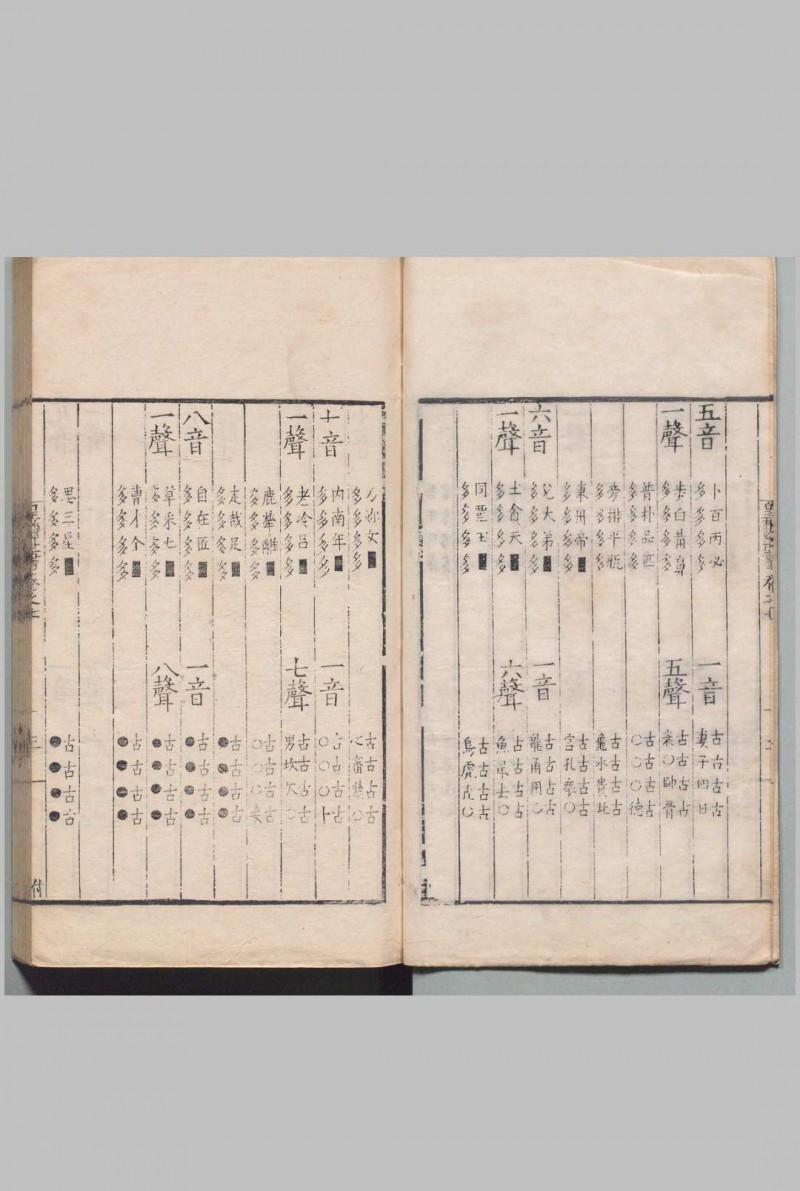 五音 卜百丙必
多多多多
一音 古古古古
妻子四日
一聲 步白葡鼻
多多多多
五聲 古古古古
衰○帥骨
普扑品匹
多多多多
古古古古
○○○德
旁排平瓶
多多多多
古古古古
龜水貴北
東丹帝■
多多多多
古古古古
宮孔衆○
六音 兌大弟■
多多多多
一音 古古古古
龍甬用○
一聲 土貪天■
多多多多
六聲 古古古古
魚鼠去○
同覃田■
多多多多
古古古古
烏虎兎○
乃妳女■
多多多多
古古古古
心審禁○
十音 内南年■
多多多多
一音 古古古古
○○○十
一聲 老冷呂■
多多多多
七聲 古古古古
男坎欠○
鹿犖離■
多多多多
古古古古
○○○妾
走哉足■
多多多多
古古古古
●●●●
八音 自在匠■
多多多多
一音 古古古古
●●●●
一聲 草采七■
多多多多
八聲 古古古古
●●●●
曹才全■
多多多多
古古古古
●●●●
思三星■
多多多多
古古古古
●●●●